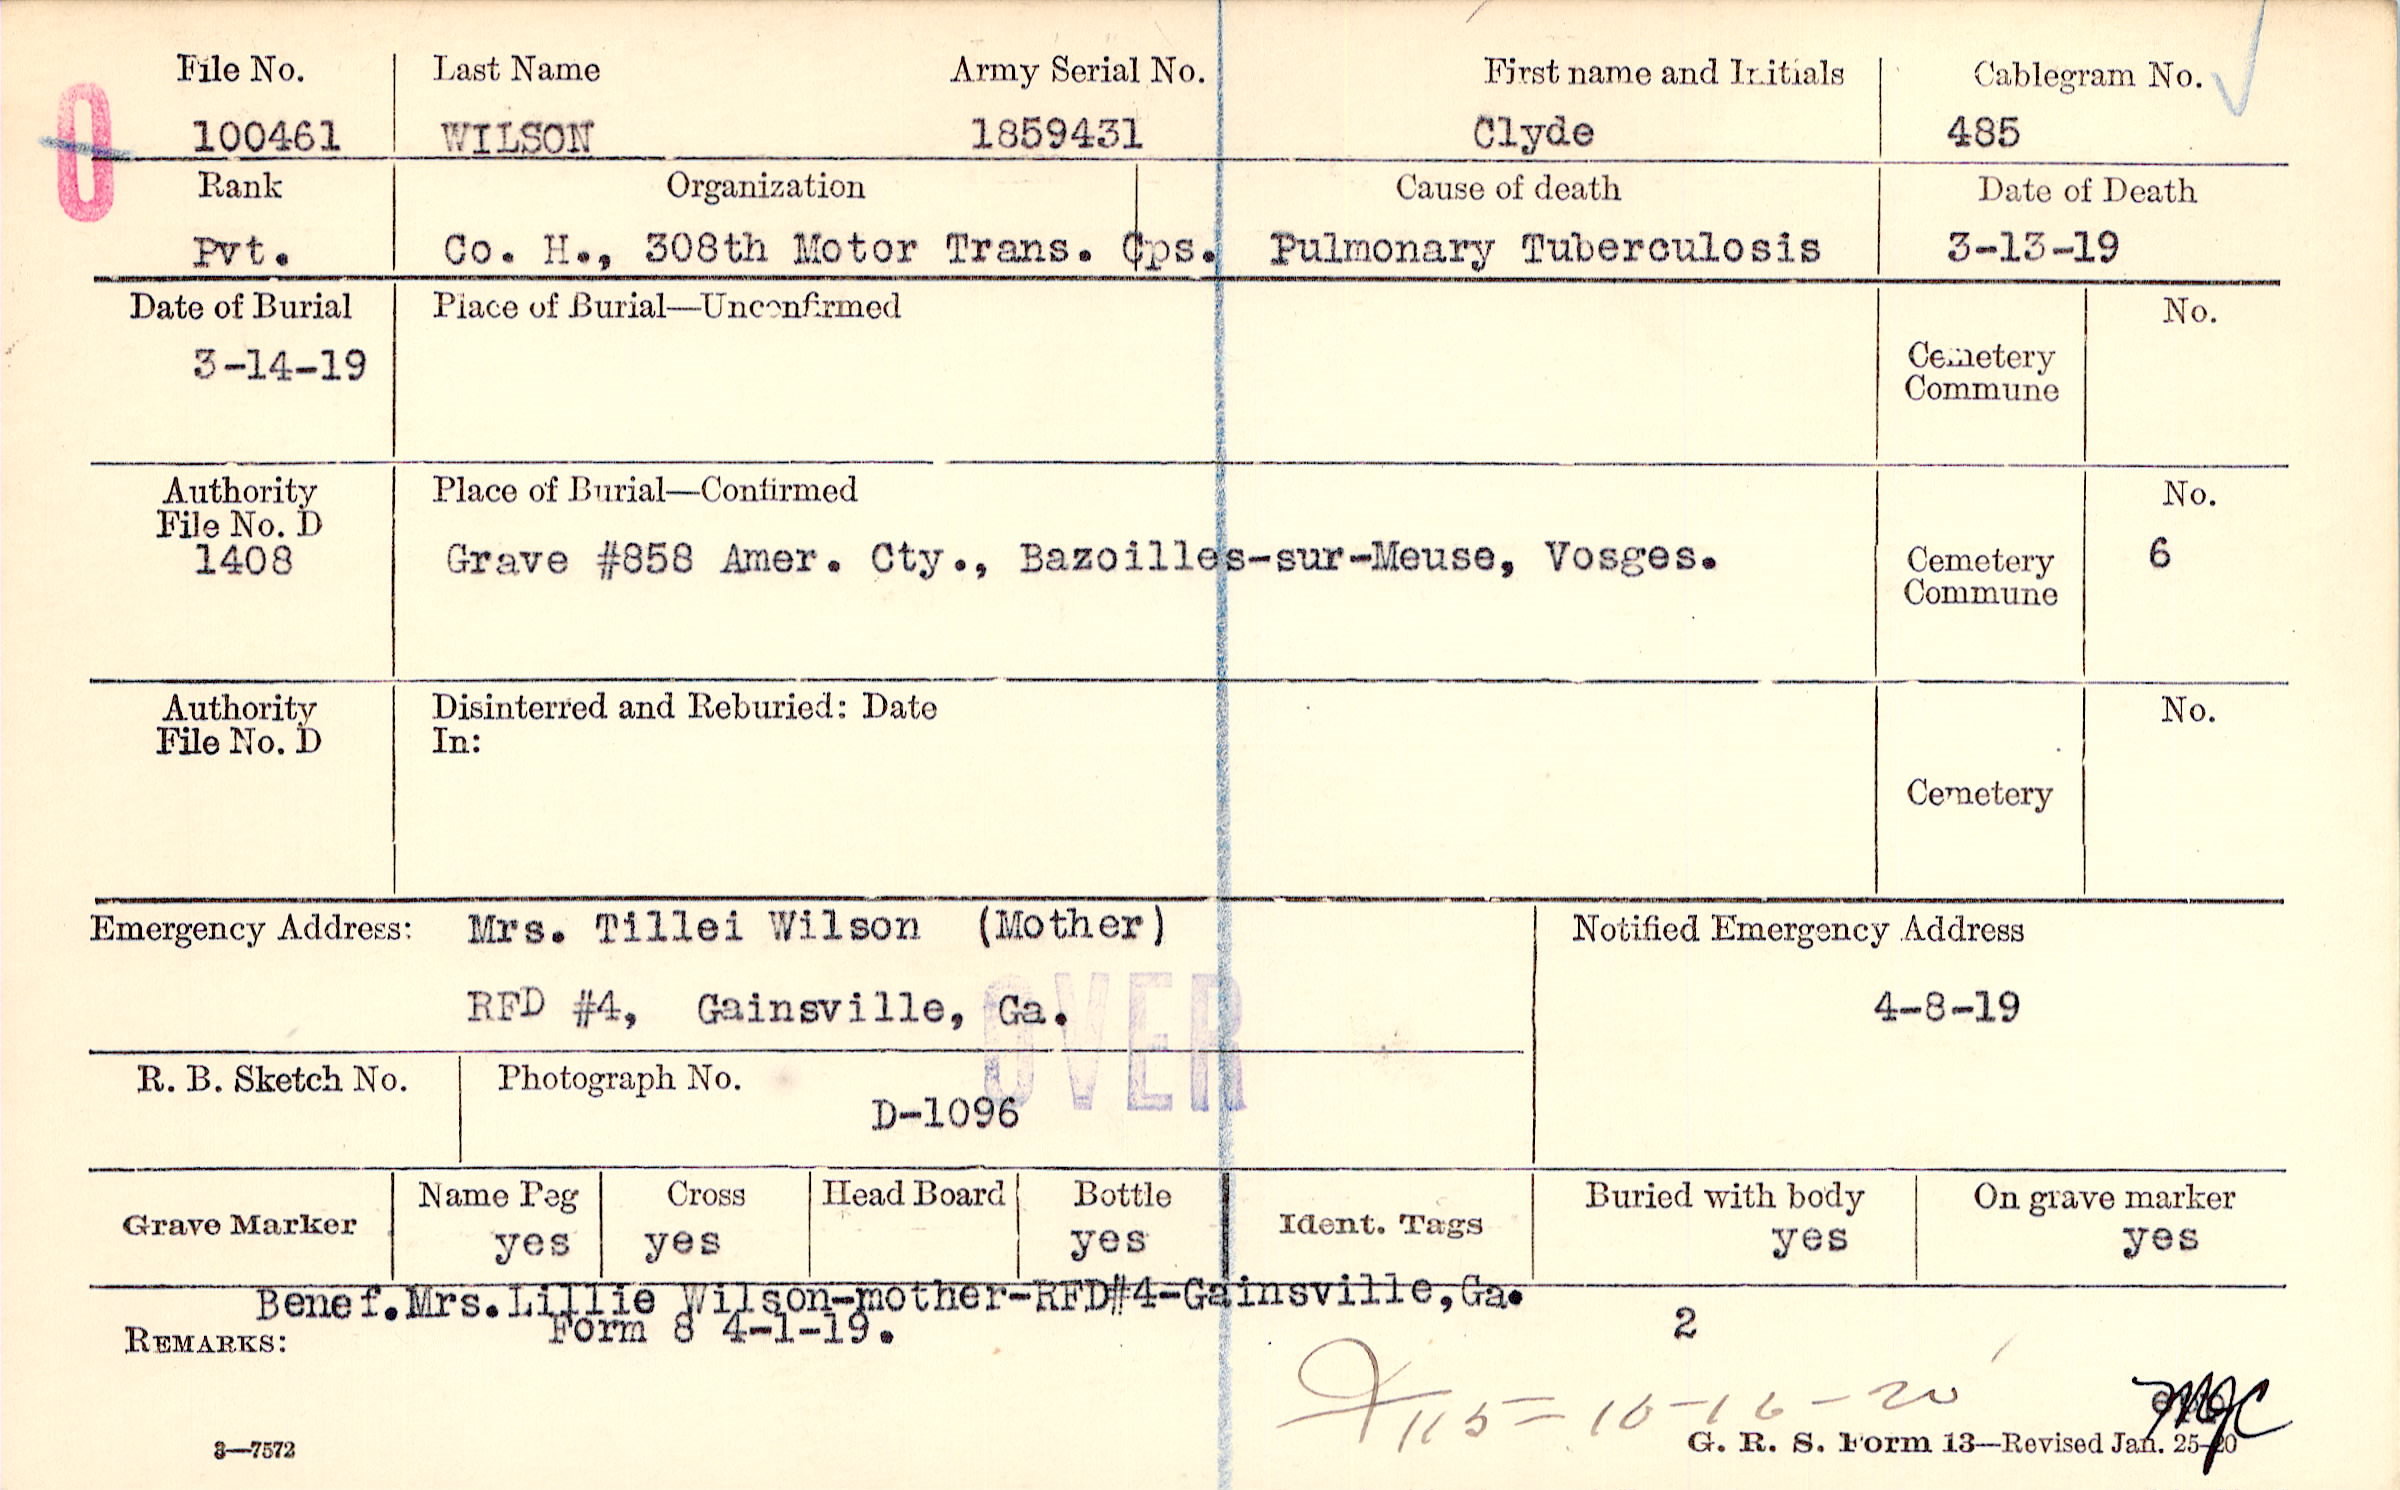 File No. Last Name Army Serial No. First name and Initials Cablegram No.
100461 WILSON 1859431 Clyde 485
Rank Organization Cause of death Date of Death
Pvt. Co. H., 308th Motor Trans. Cps. Pulmonary Tuberculosis 3-13-19
Date of Burial Place of Burial—Unconfirmed No.
3-14-19
Cemetery
Commune
Authority Place of Burial—Confirmed No.
File No. D
1408 Grave #858 Amer. Cty., Bazoilles-sur-Meuse, Vosges. Cemetery 6
Commune
Authority Disinterred and Reburied: Date No.
File No. D In:
Cemetery
Emergency Address: Mrs. Tillei Wilson (Mother) Notified Emergency Address
RFD #4, Gainsville, Ga. 4-8-19
OVER
R. B. Sketch No. Photograph No.
D-1096
Grave Marker Name Peg Cross Head Board Bottle Ident. Tags Buried with body On grave marker
yes yes yes yes yes
Benef.Mrs.Lillie Wilson-mother-RFD#4-Gainsville,Ga.
REMARKS: Form 8 4-1-19. 2
115= 10-16-20
3—7572 G. R. S. Form 13—Revised Jan. 25-20